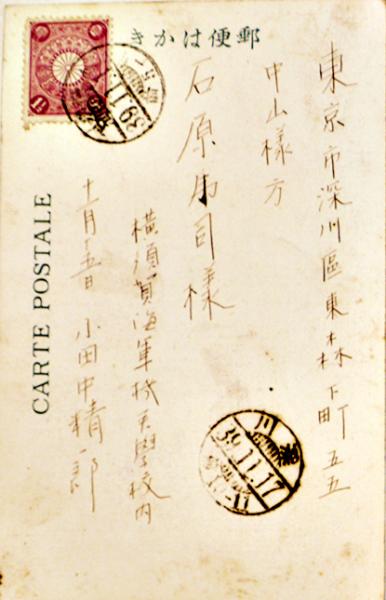 きかは便郵
東京市深川區東森下町五五
中山樣方
石原馬司樣
横須賀海軍機関學校内
十一月十五日 小田中精一郎
CARTE POSTALE
39.11.17